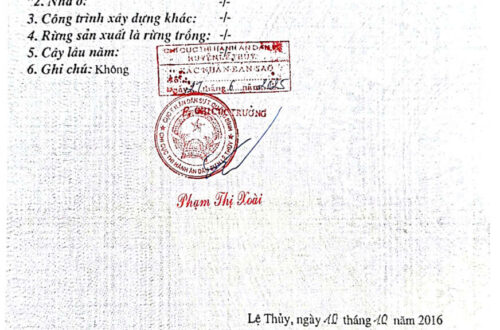 2. Nhà ở: -/-
3. Công trình xây dựng khác: -/-
4. Rừng sản xuất là rừng trồng: -/-
5. Cây lâu năm: -/-
6. Ghi chú: Không
CHI CỤC THI HÀNH ÁN DÂN SỰ
HUYỆN LỆ THỦY
XÁC NHẬN BẢN SAO
Ngày 17 tháng 6 năm
CHI CỤC TRƯỞNG
CHI CỤC THI HÀNH ÁN DÂN SỰ H. LỆ THỦY
Phạm Thị Xoài
Lệ Thủy, ngày 10 tháng 10 năm 2016